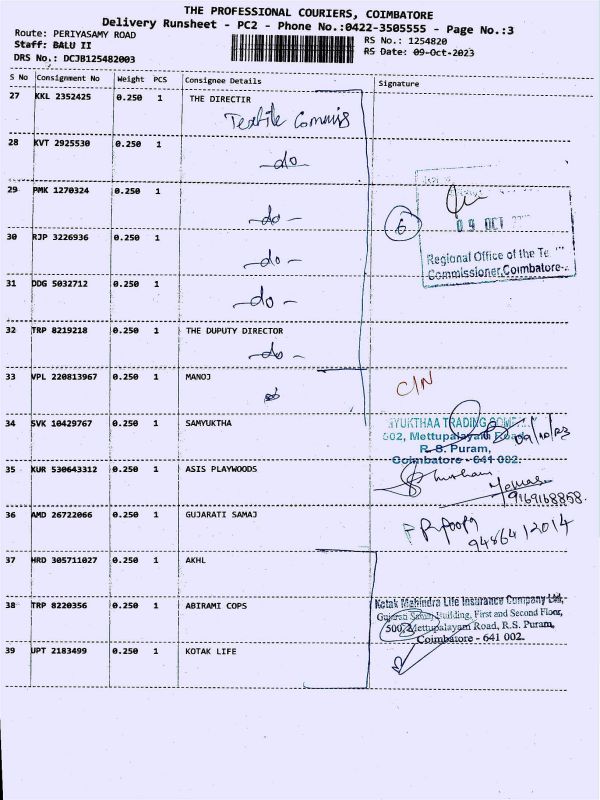 THE PROFESSIONAL COURIERS, COIMBATORE
Delivery Runsheet - PC2 - Phone No.:0422-3505555 - Page No.:3
Route: PERIYASAMY ROAD
RS No.: 1254820
Staff: BALU II
RS Date: 09-Oct-2023
DRS No.: DCJB125482003
S No Consignment No Weight PCS Consignee Details Signature
27 KKL 2352425 0.250 1 THE DIRECTIR
Textile Commis
28 KVT 2925530 0.250 1
- do
29 PMK 1270324 0.250 1
- do -
30 RJP 3226936 0.250 1
- do -
31 DDG 5032712 0.250 1
- do -
6
09 OCT
Regional Office of the Te
Commissioner, Coimbatore-
32 TRP 8219218 0.250 1 THE DUPUTY DIRECTOR
- do -
33 VPL 220813967 0.250 1 MANOJ
C/N
34 SVK 10429767 0.250 1 SAMYUKTHA
YUKTHAA TRADING COM
09/10/23
502, Mettupalayam Road,
R. S. Puram,
Coimbatore - 641 002.
35 KUR 530643312 0.250 1 ASIS PLAYWOODS
9169168858.
36 AMD 26722066 0.250 1 GUJARATI SAMAJ
9486412014
37 HRD 305711027 0.250 1 AKHL
38 TRP 8220356 0.250 1 ABIRAMI COPS
Kotak Mahindra Life Insurance Company Ltd,
Gujarati Samaj Building, First and Second Floor,
500, Mettupalayam Road, R.S. Puram,
Coimbatore - 641 002.
39 UPT 2183499 0.250 1 KOTAK LIFE